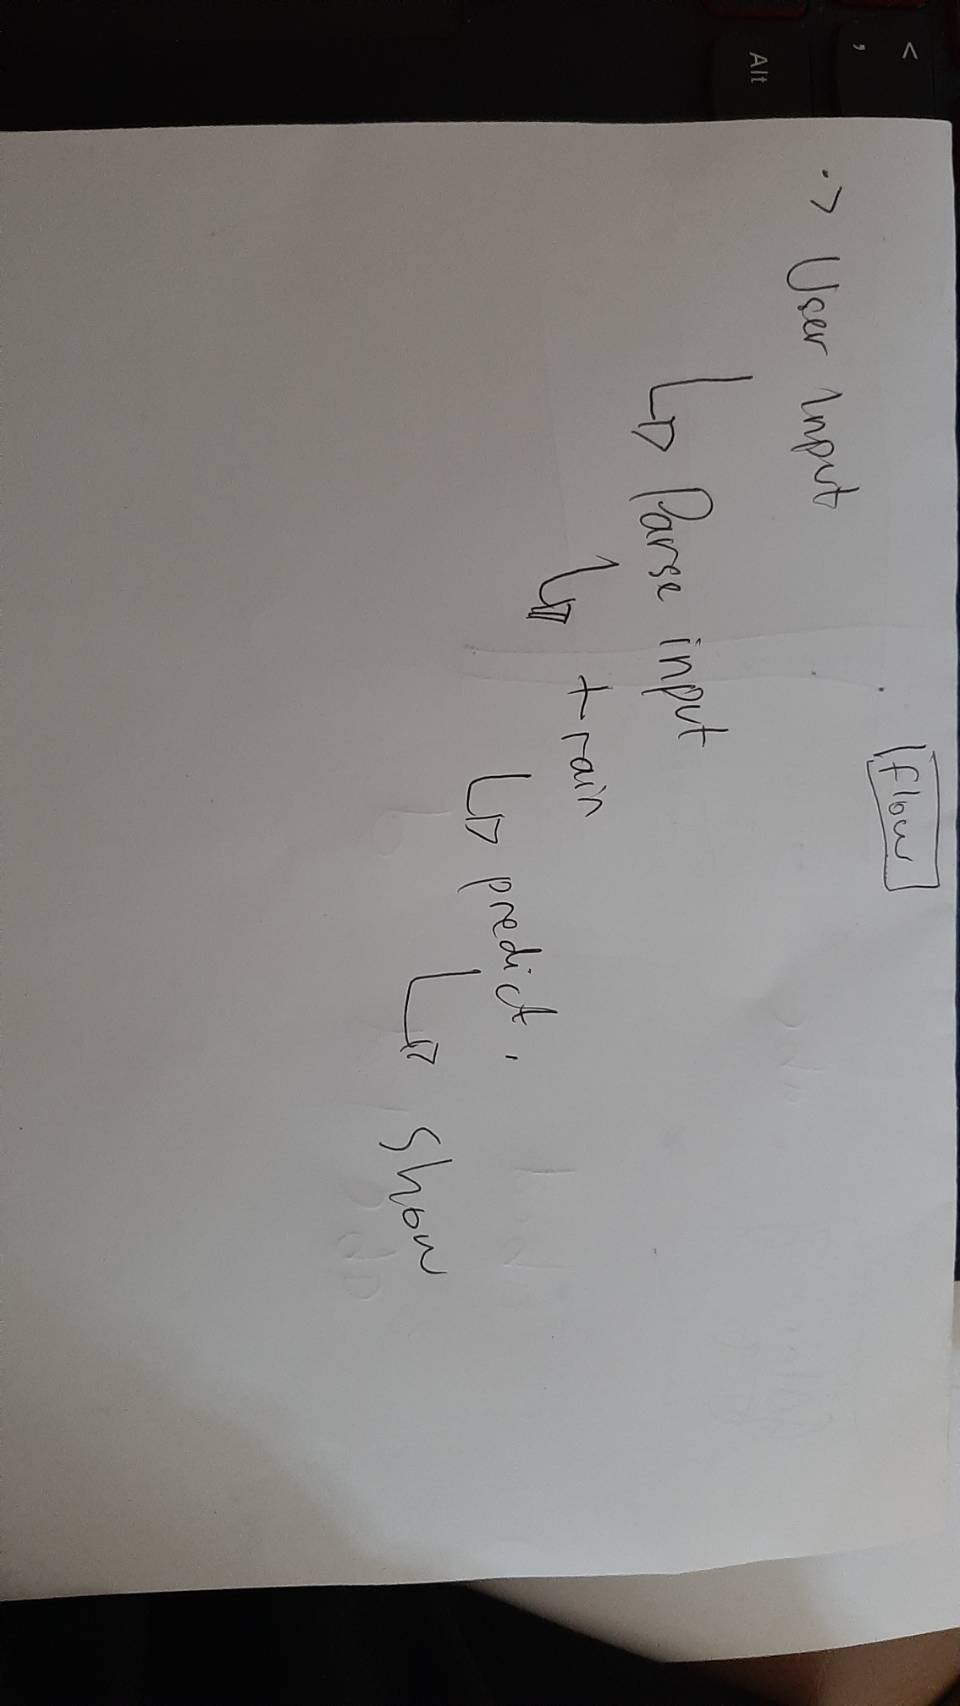 Flow
.> User Input
Parse input
train
predict.
Show
<
,
Alt